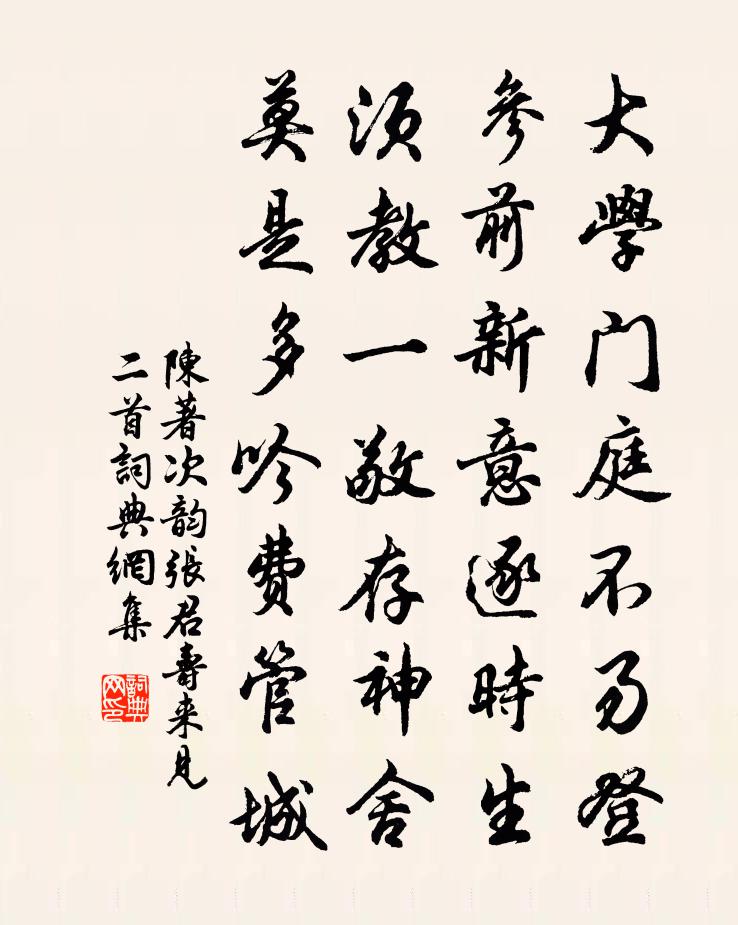 大學門庭不易登
參前新意逐時生
須教一敬存神舍
莫是多吟費管城
陳著次韵張君壽来見
二首詞典網集
詞典
网印